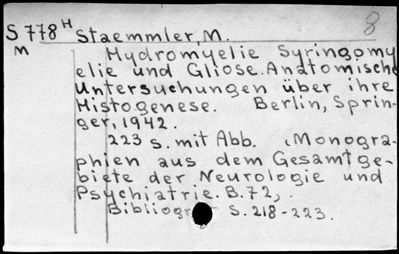 S 778 H Staemmler, M. 8
M
Hydromyelie Syringomy
elie und Gliose. Anatomische
Untersuchungen über ihre
Histogenese. Berlin, Sprin-
ger, 1942.
223 s. mit Abb. (Monogra-
phien aus dem Gesamtge-
biete der Neurologie und
Psychiatrie. B. 72).
S. 218-223.